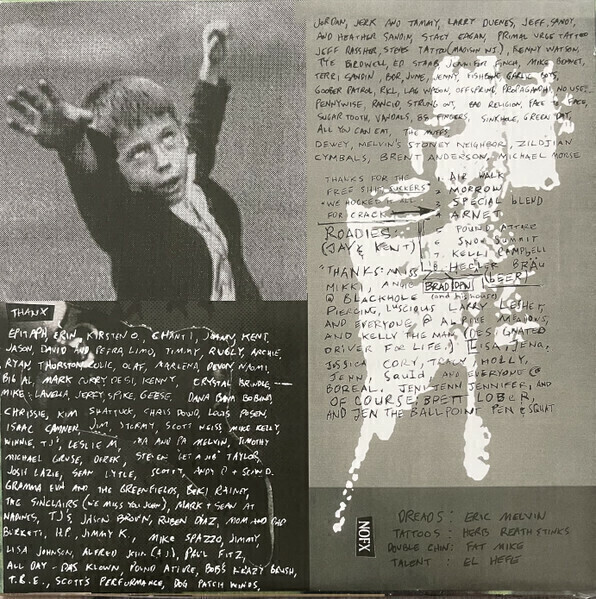 THANX
EPITAPH, ERIN, KIRSTEN O., CHANTI, JOHNNY, KENT,
JASON, DAVID AND PETRA, LIMO, TIMMY, RUELY, ARCHIE,
RYAN THURSTON, OLAF, MARLENA, DEVON, NAOMI,
BIG AL, MARK CURRY, DESI, KENNY, CRYSTAL BRINDLE,
MIKE LAVELLA, JERRY, SPIKE, GEESE. DANA
CHRISSIE, KIM SHATTUCK, CHRIS DOWD, LOUIS POSEN,
ISAAC CAMNER, JIM, STORMY, SCOTT WEISS, MIKE KELLY,
WINNIE, TJ'S, LESLIE M, MA AND PA MELVIN, TIMOTHY
MICHAEL GRUSE, DEREK, STEVEN "GET A JOB" TAYLOR,
JOSH LAZIE, SEAN LYTLE, SCOTT, ANDY O + SEAN D.
GRAMMA EVH AND THE GREENFIELDS, BEKI RAINEY,
THE SINCLAIRS (WE MISS YOU JOHN), MARK + SEAN AT
NADINES, TJ'S JASON BROWN, RUBEN DIAZ, MOM AND DAD
BURKETT, H.P. JIMMY K., MIKE SPAZZO, JIMMY,
LISA JOHNSON, ALFRED JOHN (AJ), PAUL FITZ,
ALL DAY - DAS KLOWN, POUND ATTIRE, BOB'S KRAZY BRUSH,
T.R.E., SCOTT'S PERFORMANCE, DOG PATCH WINOS,
JORDAN, JERK AND TAMMY, LARRY DUENES, JEFF, SANDY,
AND HEATHER SANDIN, STACY EAGAN, PRIMAL URGE TATTOO
JEFF RASSHER, STEVES TATTOO (MADISON WI), KENNY WATSON,
PETE BIRDWELL, ED STAMB, JENNIFER FINCH, MIKE BENNET,
TERRI SANDIN, BOB, JUNE, JENNY, FISHBONE, GARLIC POTS,
GOOBER PATROL, RKL, LAG WAGON, OFFSPRING, PROPAGANDHI, NO USE,
PENNYWISE, RANCID, STRUNG OUT, BAD RELIGION, FACE TO FACE,
SUGAR TOOTH, VANDALS, B.G. FINGERS, SINKHOLE, GREEN DAY,
ALL YOU CAN EAT, THE MUFFS,
DEWEY, MELVIN'S STONEY NEIGHBOR, ZILDJIAN
CYMBALS, BRENT ANDERSON, MICHAEL MORSE
THANKS FOR THE
FREE SHIT SUCKERS
"WE HOCKED IT ALL
FOR CRACK
1 AIR WALK
2 MORROW
3 SPECIAL BLEND
4 ARNET
5 POUND ATTIRE
6 SNOW SUMMIT
7 KELLI CAMPBELL
8 HECLER BRÄU
(BEER)
ROADIES:
(JAY & KENT)
"THANKS: MISS
MIKKI, ANGIE BRADIDDN
@ BLACKHOLE
PIERCING, LUSCIOUS LARRY LESHET,
AND EVERYONE @
AND KELLY THE MAN (DESIGNATED
DRIVER FOR LIFE) LISA, JENA,
JESSICA CORY, TRACY, HOLLY,
JENN, SQUID AND EVERYONE @
BOREAL, JENI JENN JENNIFER, AND
OF COURSE: BRETT LOBER,
AND JEN THE BALLPOINT PEN & SQUAT
NOFX
DREADS: ERIC MELVIN
TATTOOS: HERB REATHSTINKS
DOUBLE CHIN: FAT MIKE
TALENT: EL HEFE